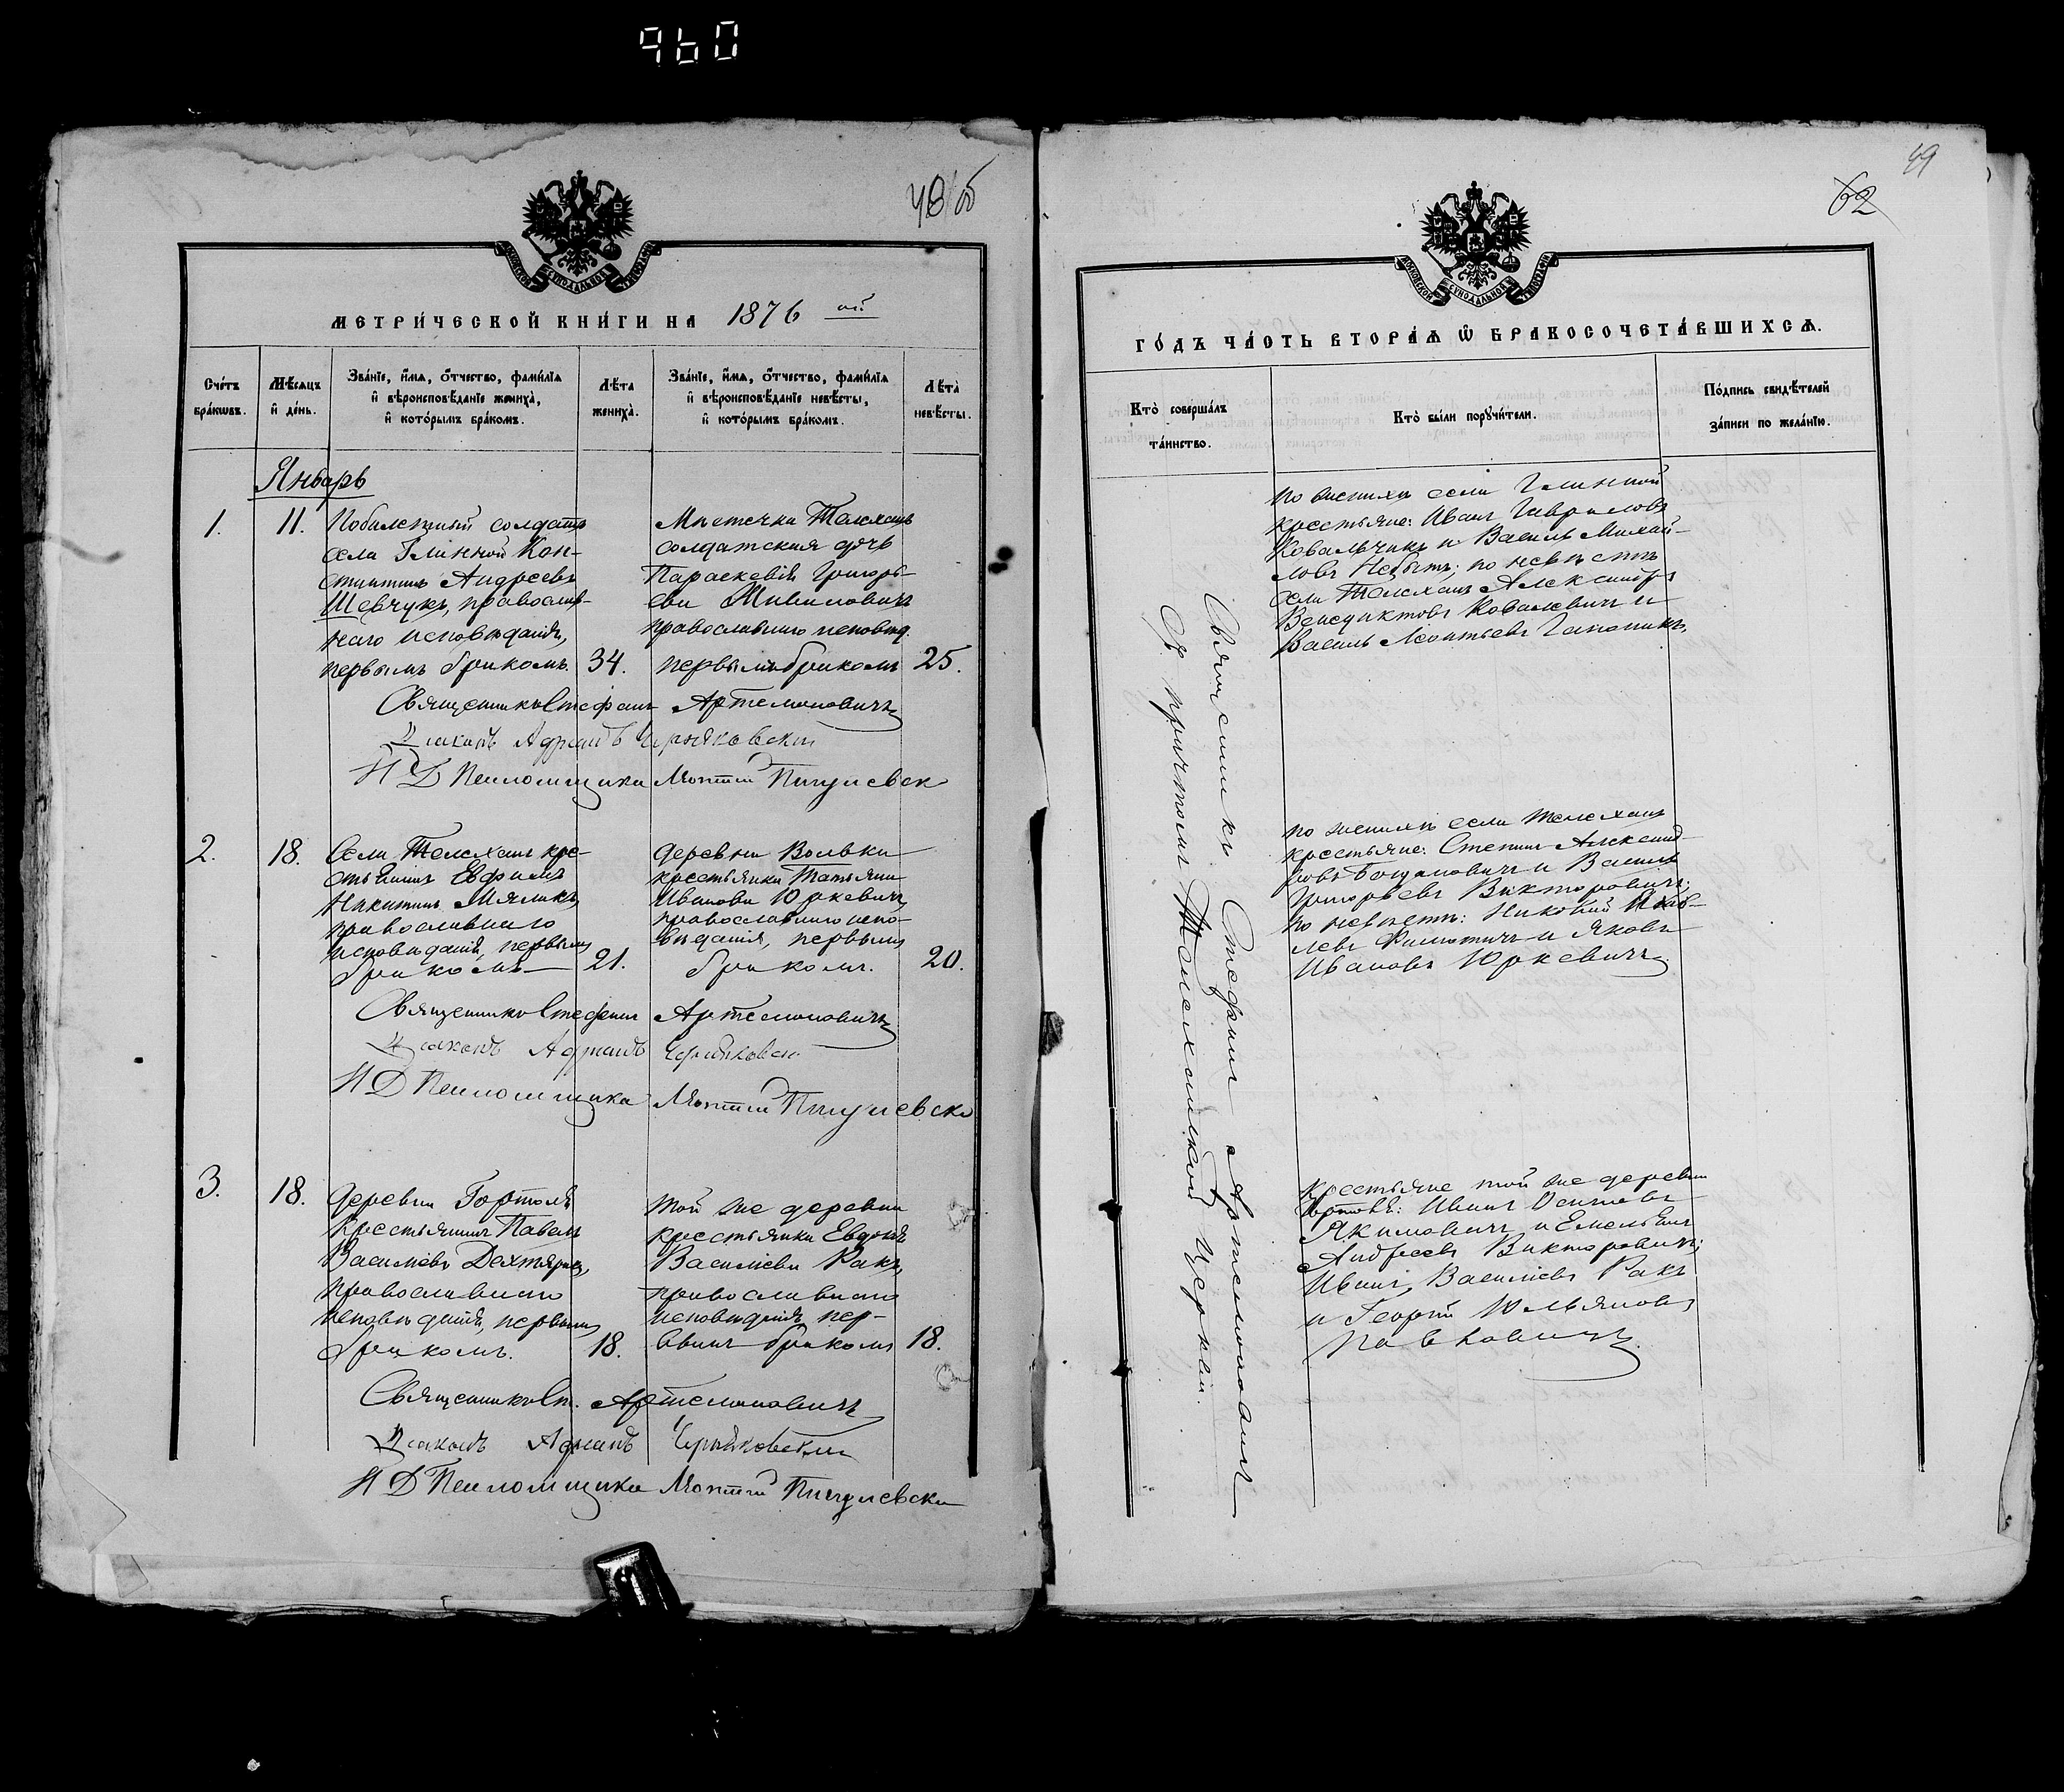 960
48 об
МЕТРИ́ЧЕСКОЙ КНИ́ГИ НА 1876 ой
Сче́тъ бра́кѡвъ.
Мѣ́сяцъ и҆ де́нь.
Зва́нїе, и҆́мя, ѻ҆́тчество, фами́лїя и҆ вѣроисповѣ́данїе жениха̀, и҆ кото́рымъ бра́комъ.
Лѣ́та жениха̀.
Зва́нїе, и҆́мя, ѻ҆́тчество, фами́лїя и҆ вѣроисповѣ́данїе невѣ́сты, и҆ кото́рымъ бра́комъ.
Лѣ́та невѣ́сты.
Январь
1.
11.
Побилетный солдатъ
села Глинной Кон-
стантинъ Андреевъ
Шевчукъ, православ-
наго исповѣданія,
первымъ бракомъ.
34.
Мѣстечка Телеханъ
солдатская дочь
Параскевія Григорь-
ева
православнаго исповѣд.
первымъ бракомъ
25.
Священникъ Стефанъ Артемоновичъ
Діаконъ Адріанъ
И Д Псаломщика
2.
18.
Села Телеханъ кре-
стьянинъ Ефимъ
Никитинъ Мяликъ
православнаго
исповѣданія, первымъ
бракомъ
21.
деревни Вольки
крестьянка Татьяна
Иванова Юркевичъ
православнаго испо-
вѣданія, первымъ
бракомъ.
20.
Священникъ Стефанъ Артемоновичъ
Діаконъ Адріанъ
И Д Псаломщика
3.
18.
деревни Гортоль
крестьянинъ Павелъ
Василіевъ Дехтяръ,
православнаго
исповѣданія, первымъ
бракомъ.
18.
той же деревни
крестьянка Евдокія
Василіева Ракъ,
православнаго
исповѣданія, пер-
вымъ бракомъ
18.
Священникъ Ст. Артемоновичъ
Діаконъ Адріанъ
И Д Псаломщика
49
62
ГО́ДЪ ЧА́СТЬ ВТОРА́Я Ѽ БРАКОСОЧЕТА́ВШИХСЯ.
Кто̀ соверша́лъ та́инство.
Кто̀ бы́ли порꙋчи́тели.
По́дпись свидѣ́телей за́писи по жела́нїю.
Священникъ Стефанъ Артемоновичъ
съ причтомъ Телеханской церкви.
по женихѣ села Глинной
крестьяне: Иванъ Гавриловъ
Ковальчикъ и Василь Михай-
ловъ Небытъ; по невѣстѣ
села Телеханъ Александръ
Венедиктовъ Ковалевичъ и
Василь Леонтьевъ Гапоникъ.
по женихѣ села Телеханъ
крестьяне: Степанъ Александ-
ровъ Богдановичъ и Василь
Григорьевъ Викторовичъ;
по невѣстѣ:
и Яковъ
Ивановъ Юркевичъ
крестьяне той же деревни
Гортоль: Иванъ Осиповъ
Якимовичъ и Емельянъ
Андреевъ Викторовичъ;
Иванъ Василіевъ Ракъ
и Георгій Юльяновъ
Павловичъ.